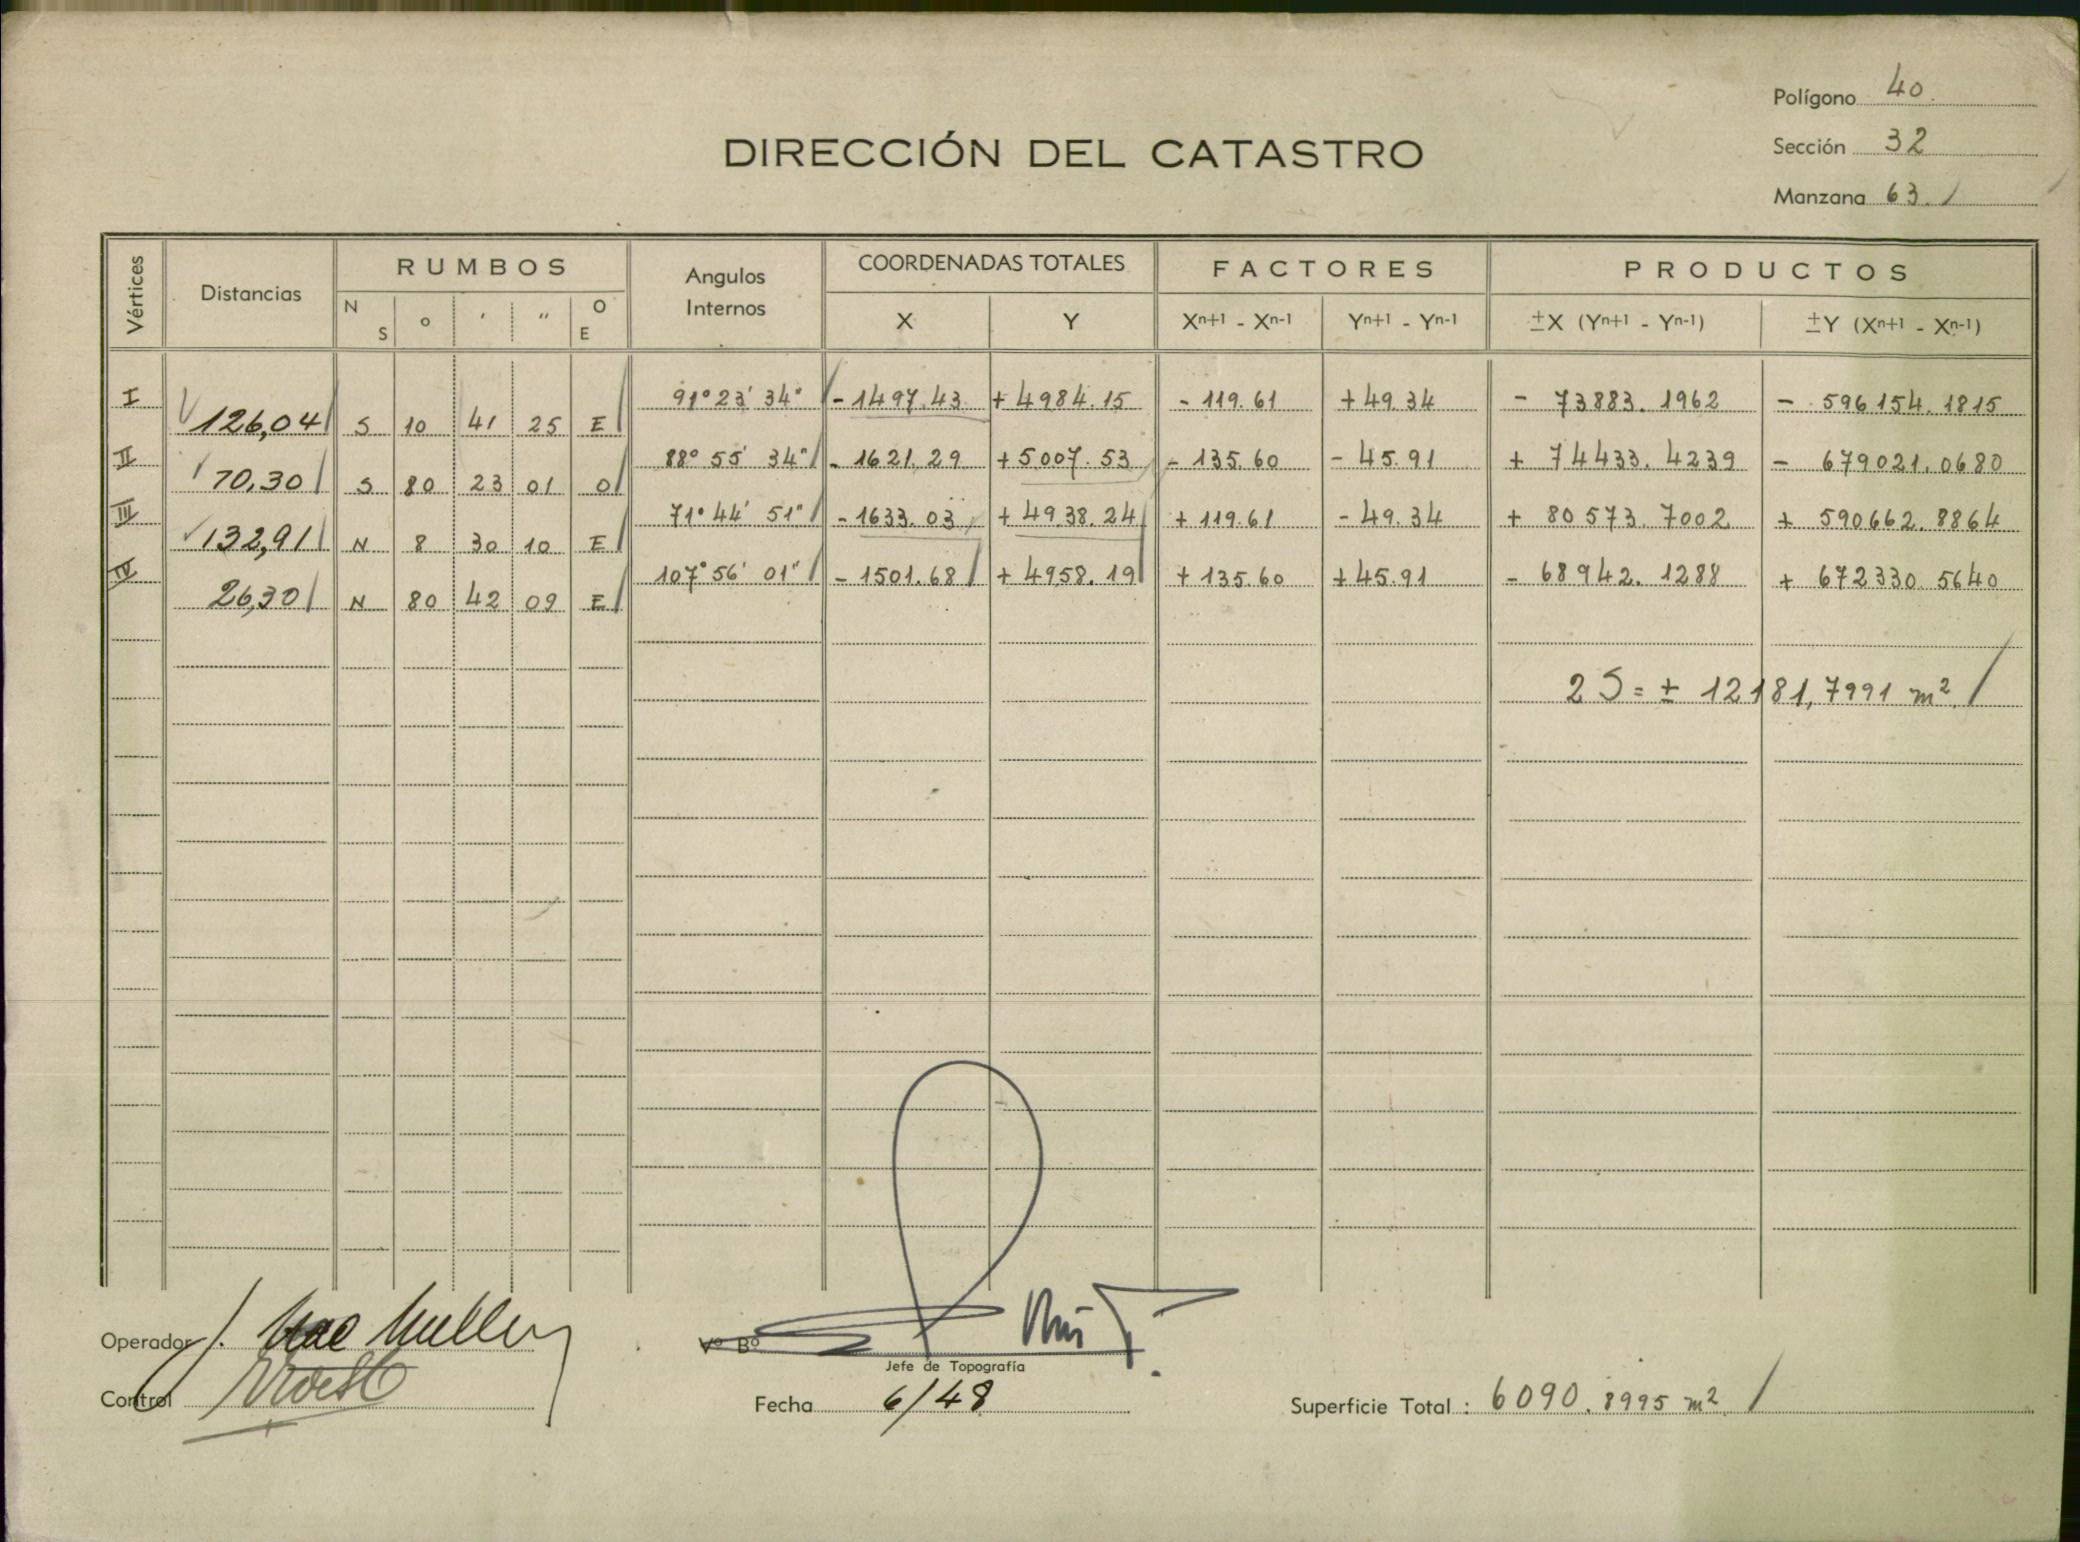 Polígono 40.
Sección 32
Manzana 63.
DIRECCIÓN DEL CATASTRO
Vértices Distancias RUMBOS Angulos Internos COORDENADAS TOTALES FACTORES PRODUCTOS
N S ° ' " O E X Y Xn+1 - Xn-1 Yn+1 - Yn-1 ±X (Yn+1 - Yn-1) ±Y (Xn+1 - Xn-1)
I 91° 23' 34" - 1497.43 + 4984.15 - 119.61 + 49.34 - 73883.1962 - 596154.1815
126,04 S 10 41 25 E
II 88° 55' 34" - 1621,29 + 5007.53 - 135.60 - 45.91 + 74433.4239 - 679021.0680
70,30 S 80 23 01 O
III 71° 44' 51" - 1633.03 + 4938.24 + 119.61 - 49.34 + 80573.7002 + 590662.8864
132,91 N 8 30 10 E
IV 107° 56' 01" - 1501.68 + 4958.19 + 135.60 + 45.91 - 68942.1288 + 672330.5640
26,30 N 80 42 09 E
2 S = ± 12181,7991 m²
Operador J. Mac Mullen
Vº Bº
Jefe de Topografía
Control
Fecha 6/48
Superficie Total : 6090.8995 m²